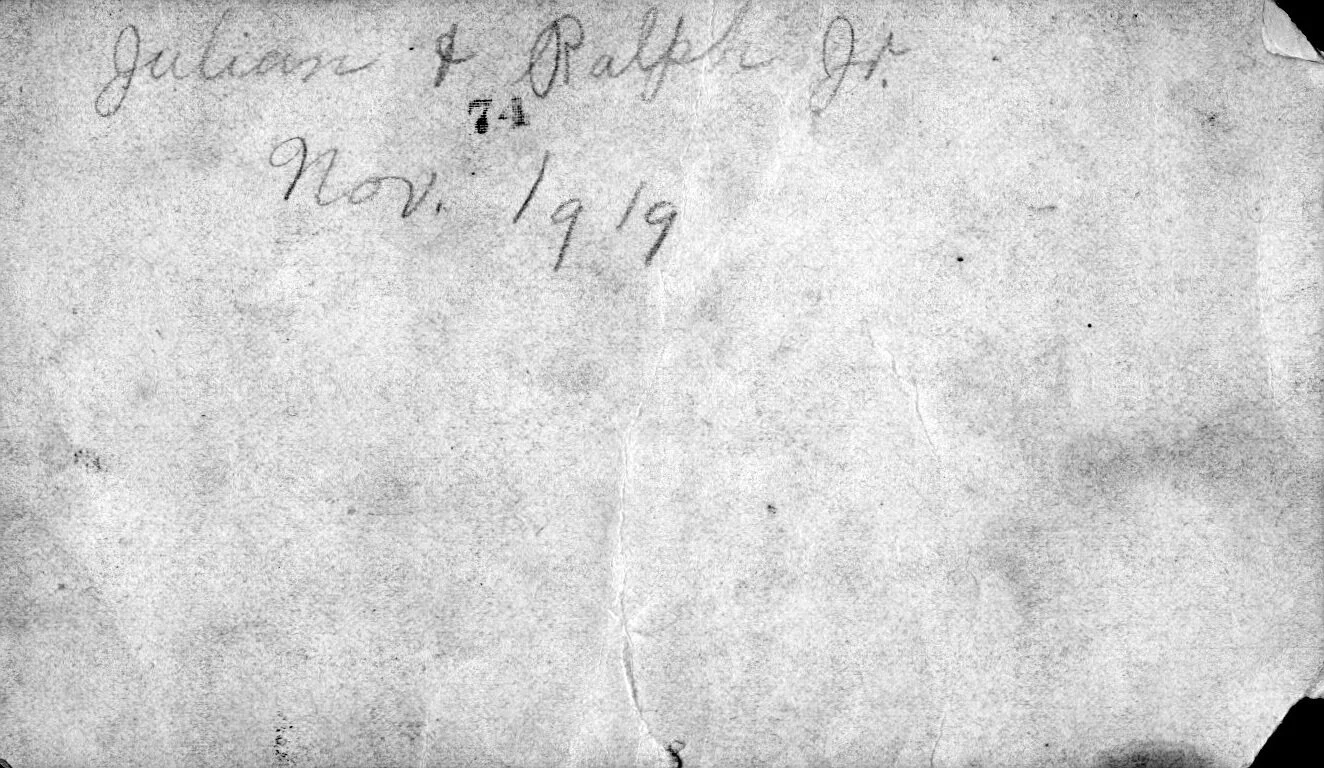 Julian & Ralph Jr.
74
Nov. 1919